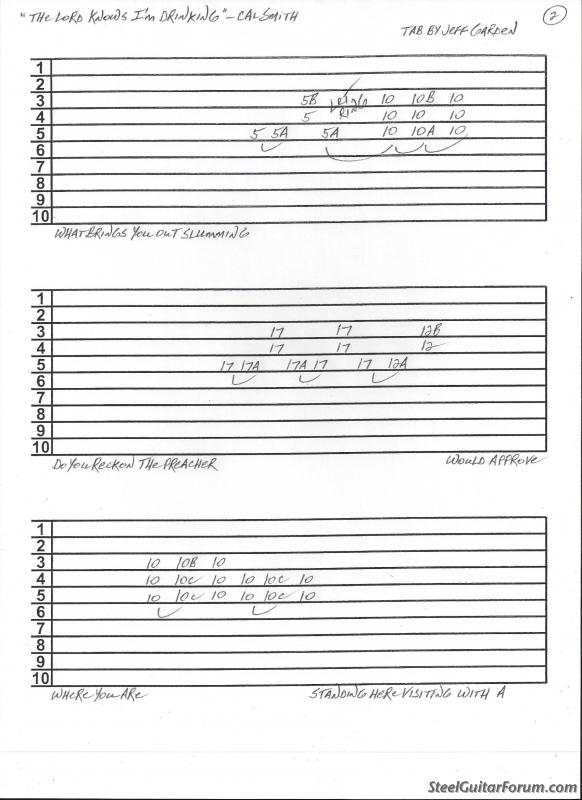 "THE LORD KNOWS I'M DRINKING" - CAL SMITH
2
TAB BY JEFF GARDEN
1
2
3 5B LET 10 10B 10
4 5 RING 10 10 10
5 5 5A 5A 10 10A 10
6
7
8
9
10
WHAT BRINGS YOU OUT SLUMMING
1
2
3 17 17 12B
4 17 17 12
5 17 17A 17A 17 17 12A
6
7
8
9
10
DO YOU RECKON THE PREACHER WOULD APPROVE
1
2
3 10 10B 10
4 10 10C 10 10 10C 10
5 10 10C 10 10 10C 10
6
7
8
9
10
WHERE YOU ARE STANDING HERE VISITING WITH A
SteelGuitarForum.com